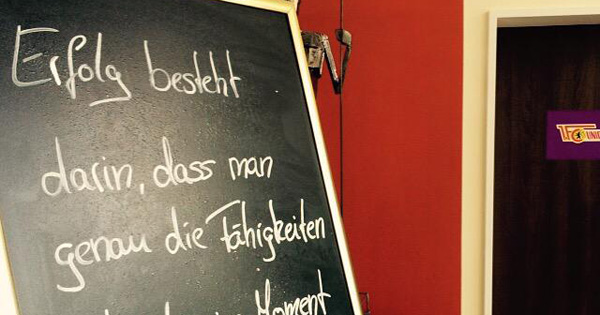 Erfolg besteht
darin, dass man
genau die Fähigkeiten
Moment
1.FC UNIO